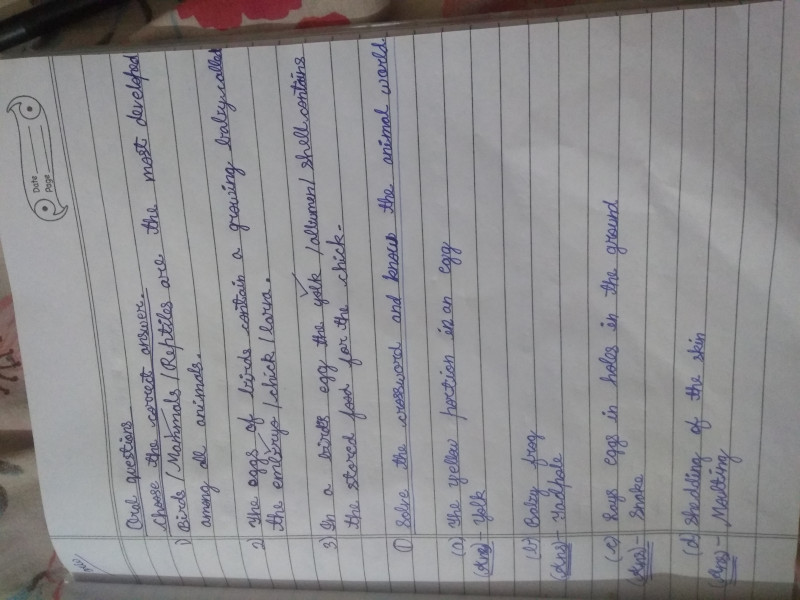 Date
Page
Oral questions
choose the correct answer.
1) Birds / Mammals / Reptiles are the most developed
among all animals.
2) The eggs of birds contain a growing baby called
the embryo / chick / larva.
3) In a birds egg the yolk / allumen / shell contains
the stored food for the chick.
① Solve the crossword and know the animal world.
(a) The yellow portion in an egg
(Ans)- Yolk
(b) Baby frog
(Ans)- Tadpole
(c) Lays eggs in holes in the ground
(Ans)- Snake
(d) Shedding of the skin
(Ans)- Moulting